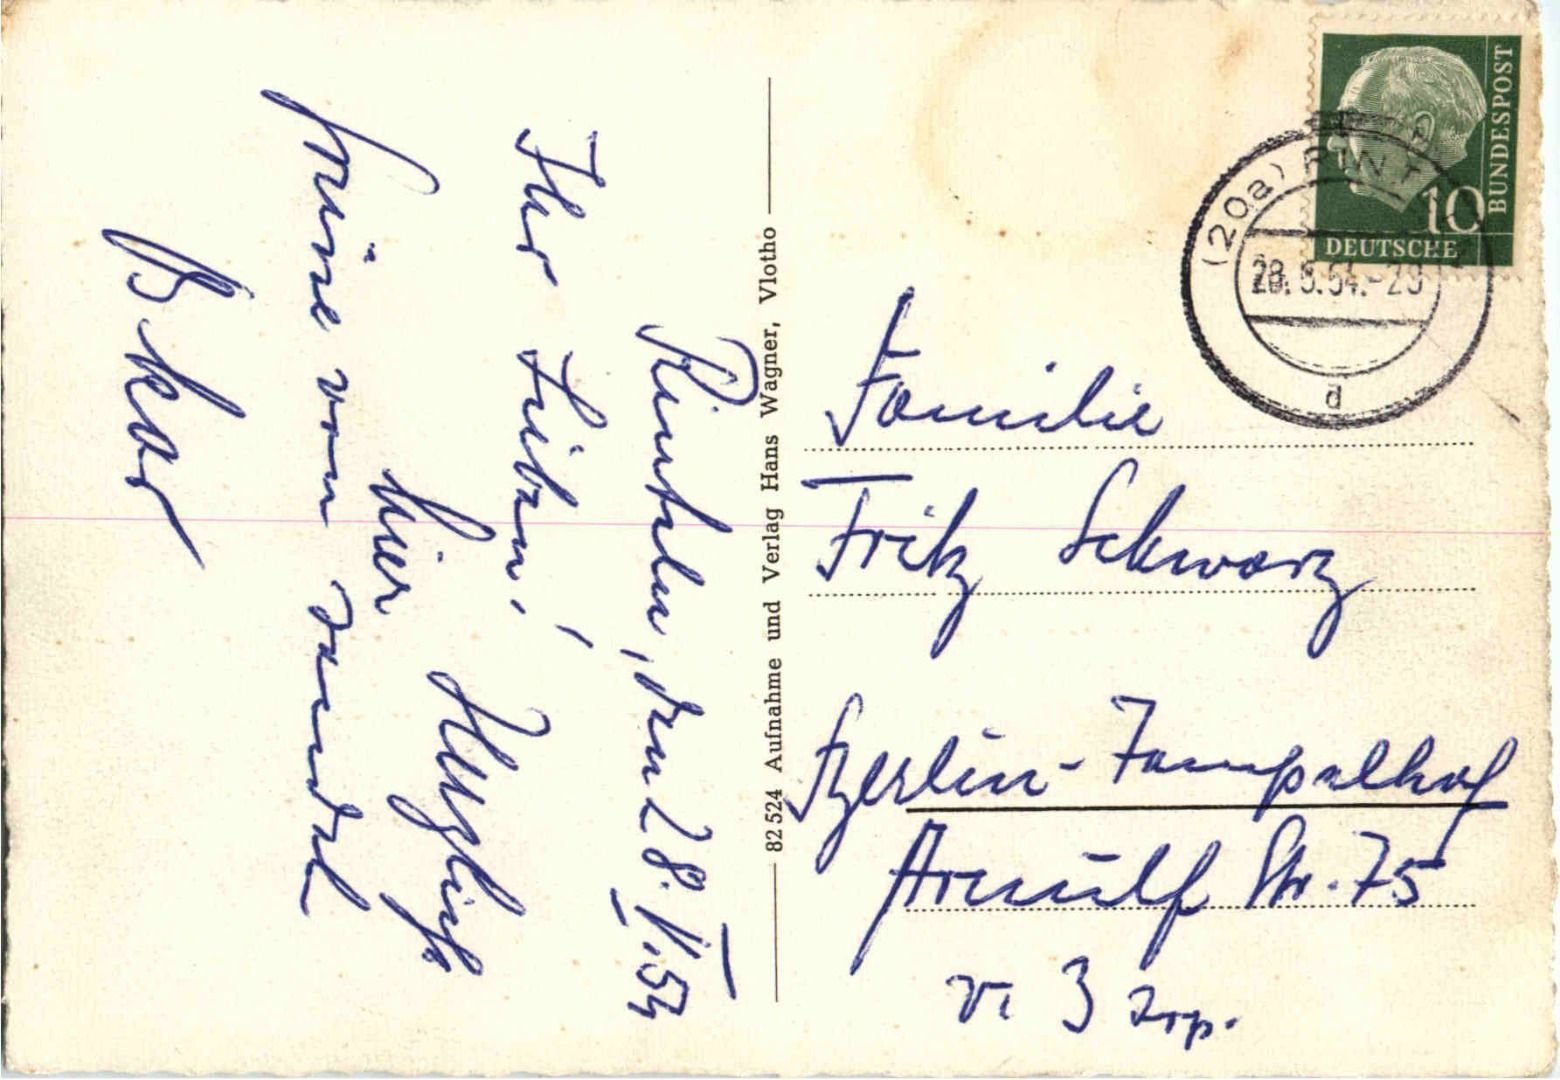 Rinteln, den 28.V.54
Ihr Lieben!
Herzliche
Grüße von hier sendet
82 524 Aufnahme und Verlag Hans Wagner, Vlotho
DEUTSCHE
BUNDESPOST
10
(20a) RINT
28.5.54.-20
d
Familie
Fritz Schwarz
Berlin-Tempelhof
Arnulf Str. 75
v. 3 Trp.